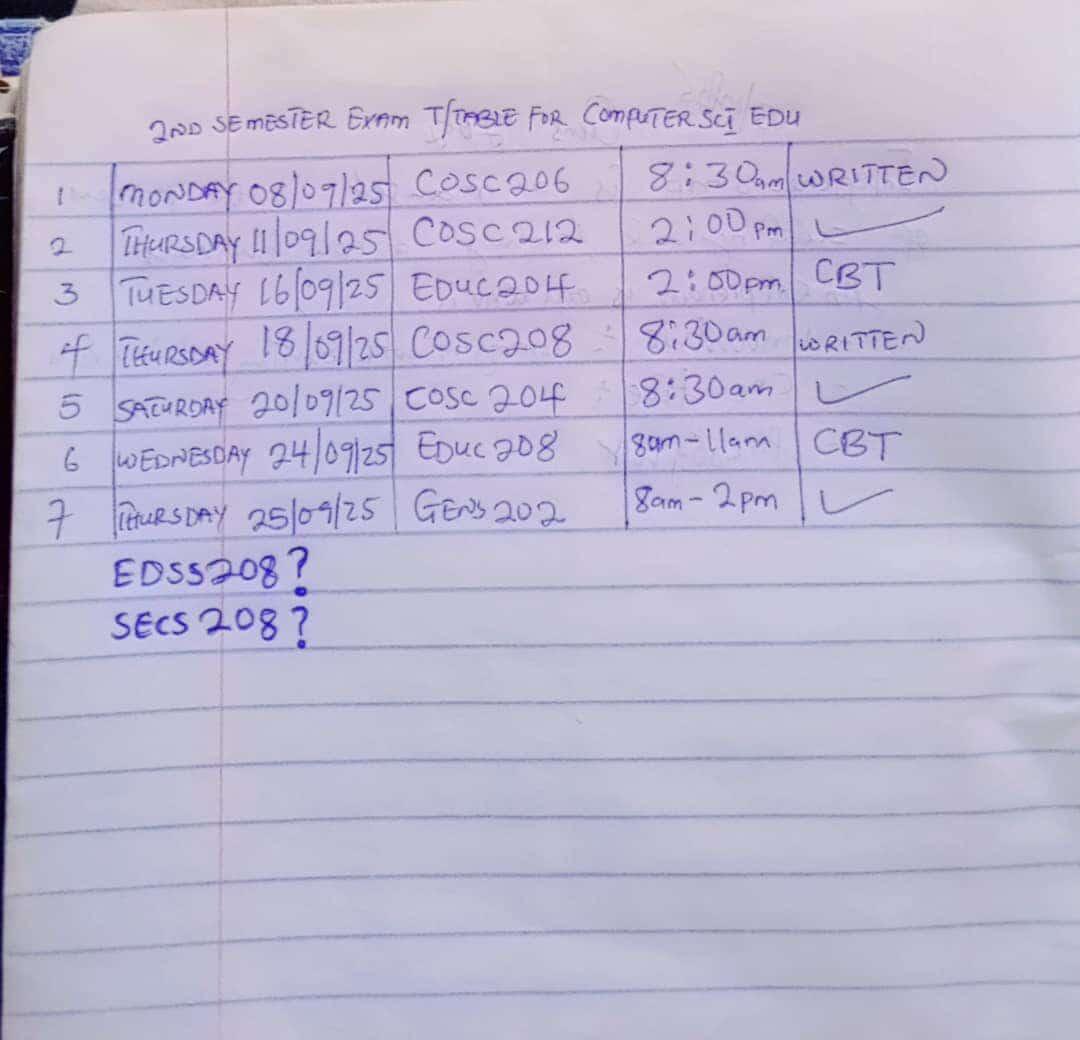 2ND SEMESTER EXAM T/TABLE FOR COMPUTER SCI EDU
1 MONDAY 08/09/25 COSC206 8:30am WRITTEN
2 THURSDAY 11/09/25 COSC212 2:00pm ✓
3 TUESDAY 16/09/25 EDUC204 2:00pm CBT
4 THURSDAY 18/09/25 COSC208 8:30am WRITTEN
5 SATURDAY 20/09/25 COSC 204 8:30am ✓
6 WEDNESDAY 24/09/25 EDUC 208 8am-11am CBT
7 THURSDAY 25/09/25 GENS 202 8am-2pm ✓
EDSS208?
SECS 208?